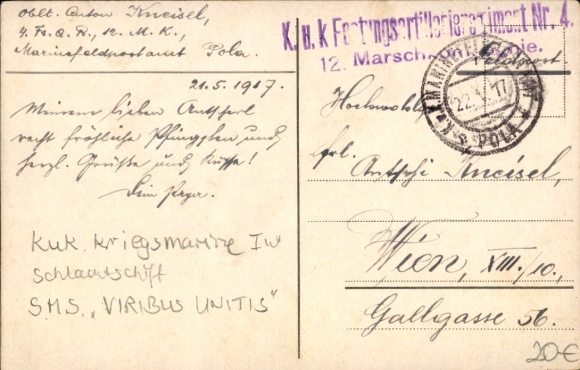 Oblt. Anton Kneisel,
4. Fs. A. R., 12. M. K.,
Marinefeldpostamt Pola.
K. u. K Festungsartillerieregiment Nr. 4.
12. Marsch
Feldpost
K.u.K. MARINEFELDPOSTAMT
22.V.17
POLA
21.5.1917
Meinem lieben
recht fröhliche Pfingsten und
herzl. Grüße und Küsse!
Dein Papa.
Hochwohlgeb.
Frl.
Kneisel,
Wien, XIII./10.,
Gallgasse 56.
KuK. Kriegsmarine IWK
Schlachtschiff
SMS. „VIRIBUS UNITIS"
20€